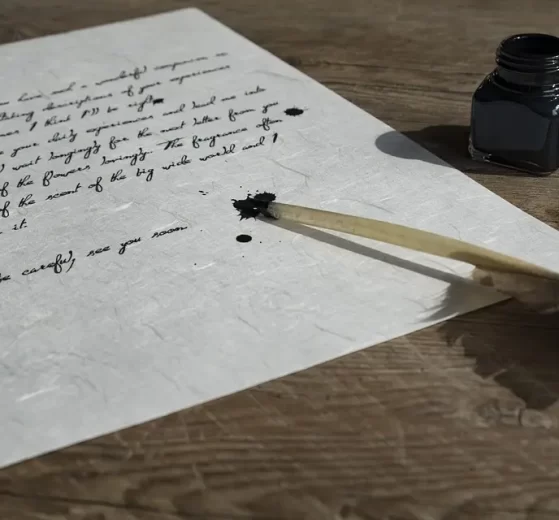 have and a wonderful companion on
descriptions of your experiences
I think I'll be right and
your daily experiences and lead me into
wait longingly for the next letter from you
of the flowers lovingly. The fragrance often
of the scent of the big wide world and I
it.
be careful, see you soon